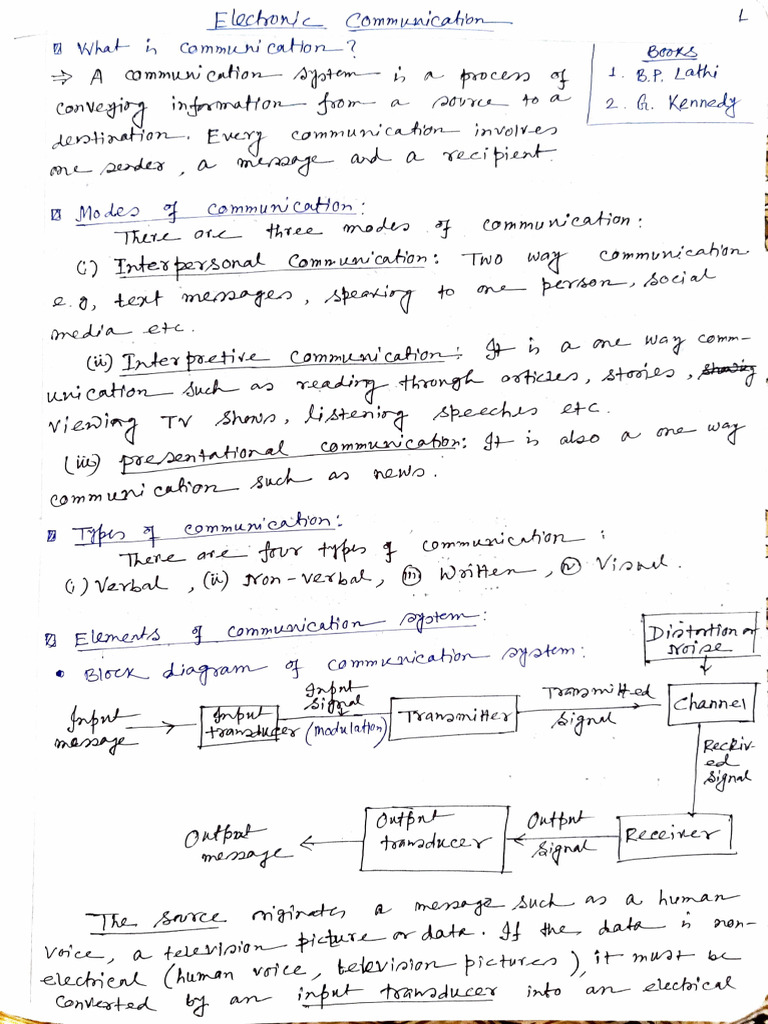 Electronic Communication
1
What is communication?
⇒ A communication system is a process of
conveying information from a source to a
destination. Every communication involves
one sender, a message and a recipient.
Books
1. B.P. Lathi
2. G. Kennedy
Modes of communication:
There are three modes of communication:
(i) Interpersonal Communication: Two way communication
e.g, text messages, speaking to one person, social
media etc.
(ii) Interpretive Communication: It is a one way comm-
unication such as reading through articles, stories,
viewing TV shows, listening speeches etc.
(iii) presentational communication: It is also a one way
communication such as news.
Types of communication:
There are four types of communication:
(i) Verbal, (ii) Non-verbal, (iii) Written, (iv) Visual.
Elements of communication system:
• Block diagram of communication system:
Distortion or
Noise
Input
message
Input
transducer
Input
signal
(modulation)
Transmitter
Transmitted
signal
Channel
Receiv-
ed
signal
Receiver
Output
signal
Output
transducer
Output
message
The source originates a message such as a human
voice, a television picture or data. If the data is non-
electrical (human voice, television pictures), it must be
converted by an input transducer into an electrical